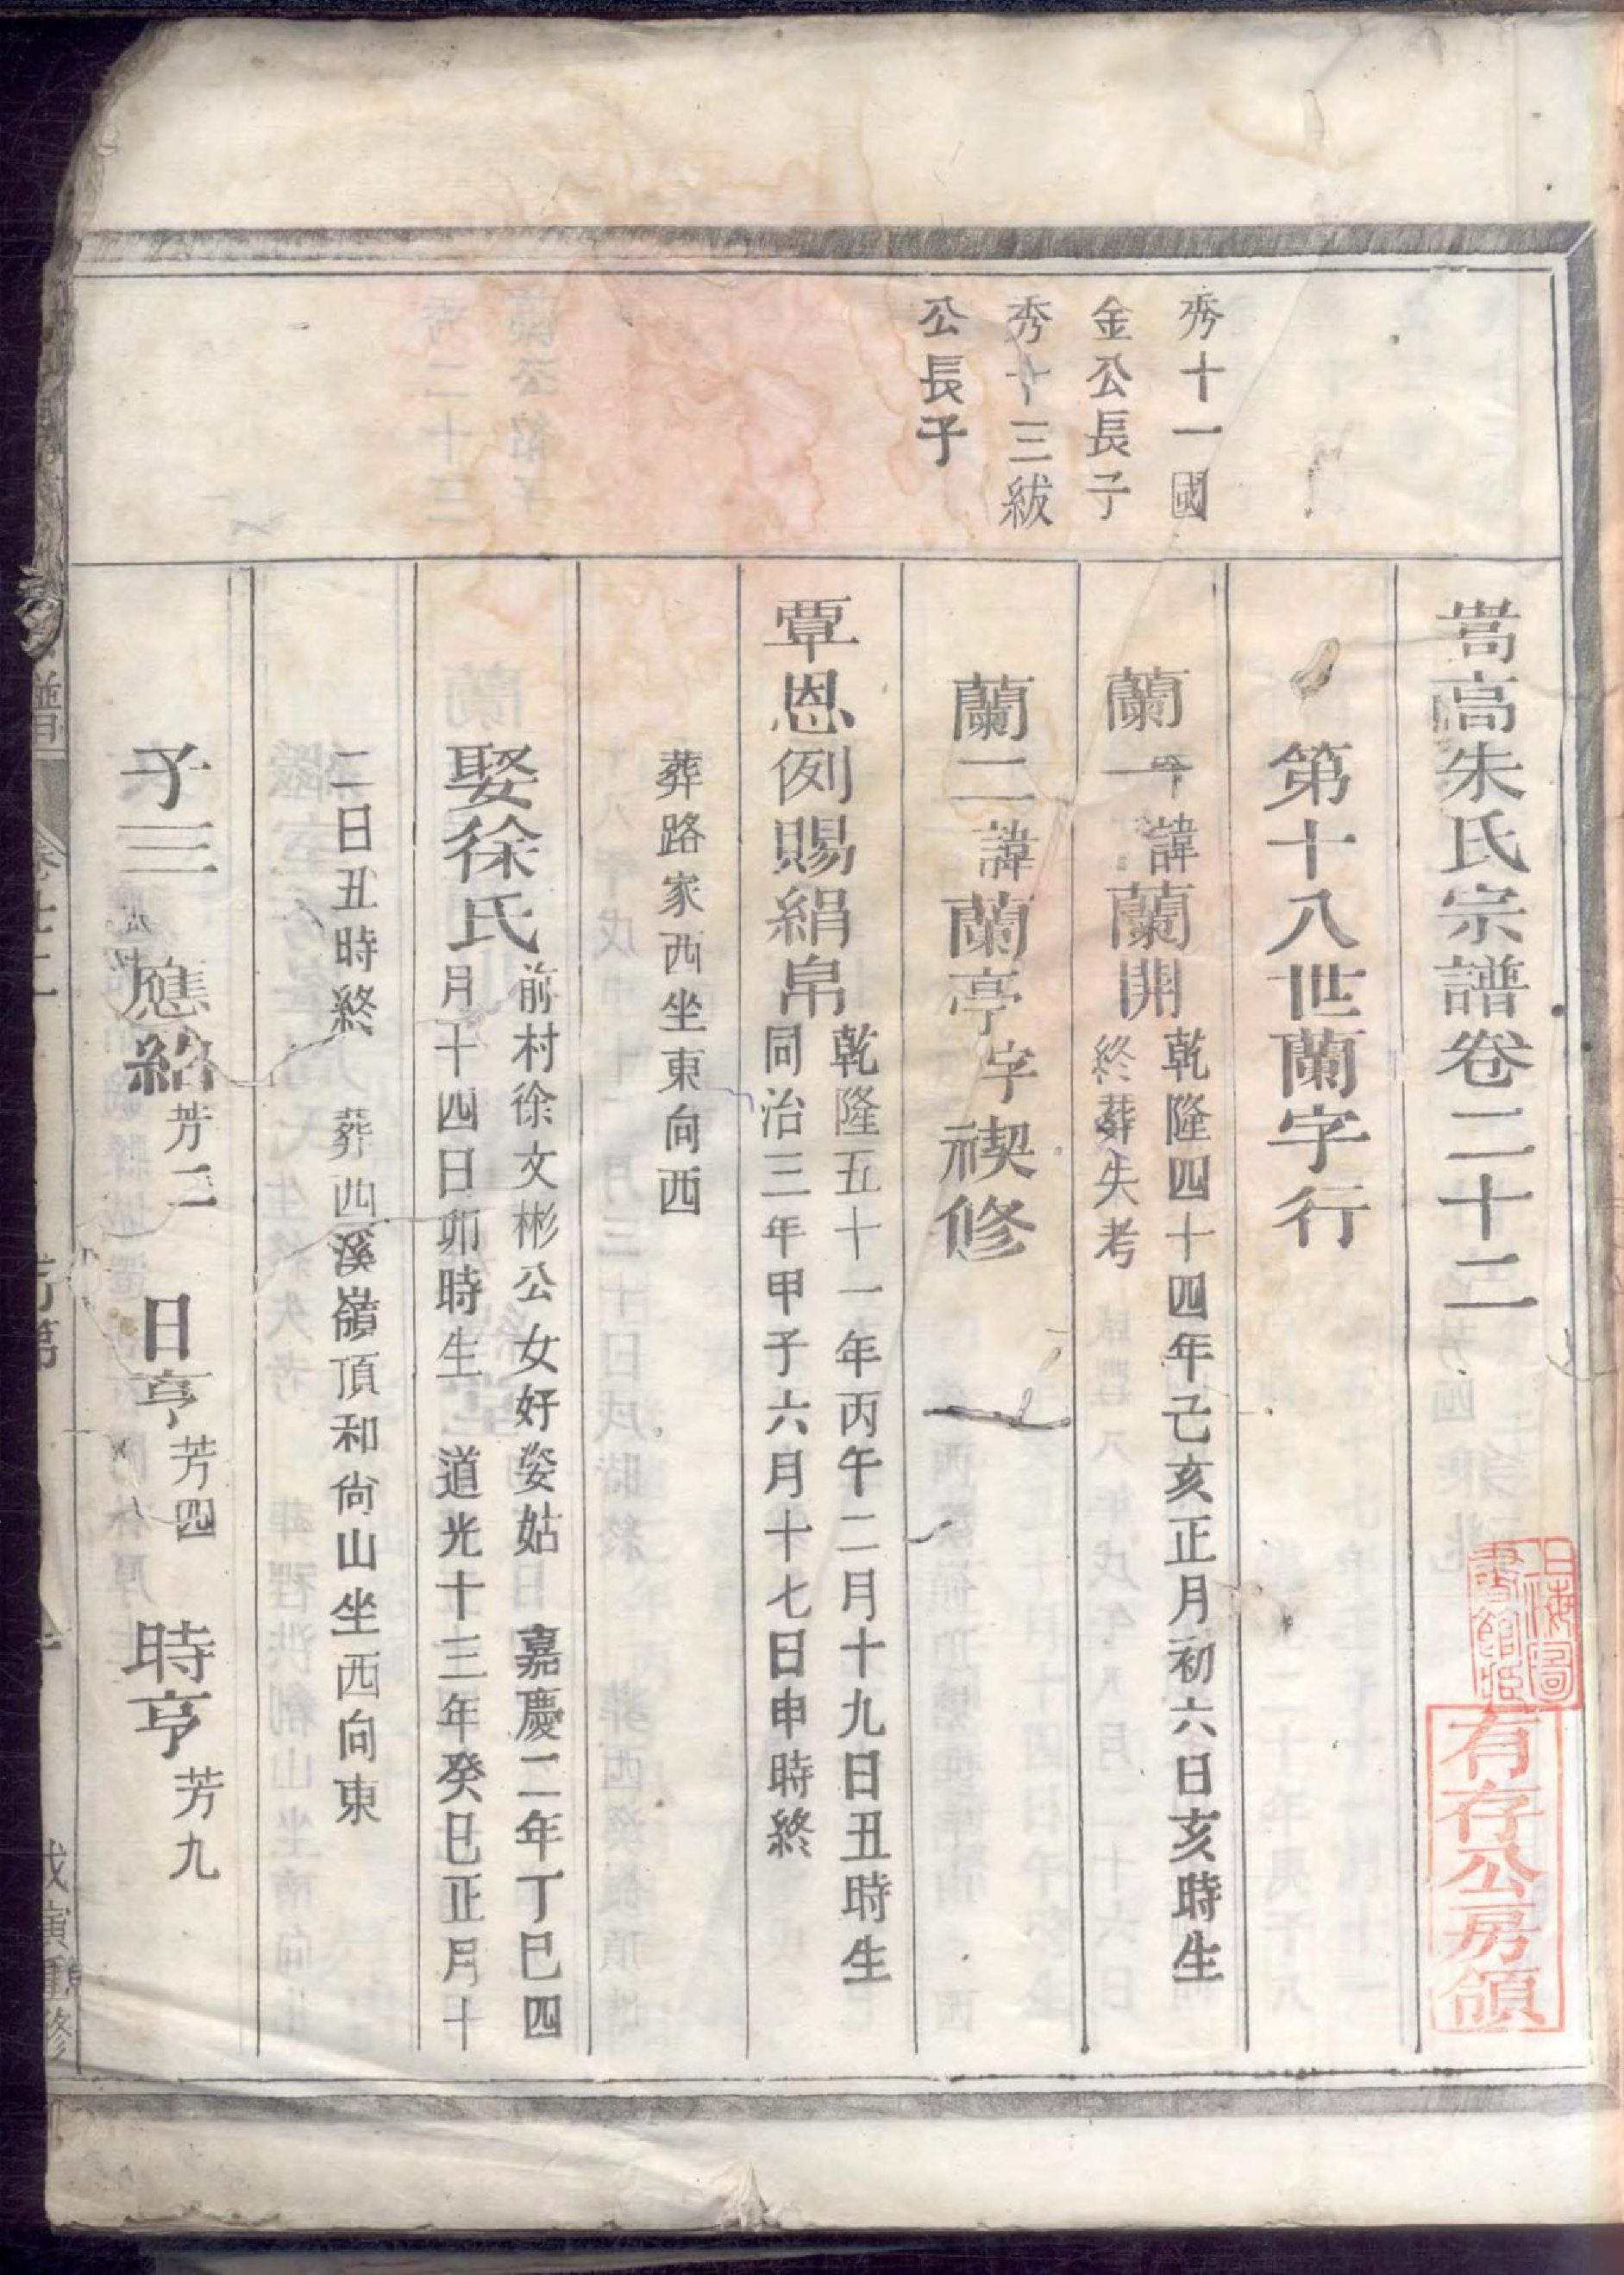 嵩高朱氏宗譜卷二十二
第十八世蘭字行
秀十一國
金公長子
蘭一諱蘭開
乾隆四十四年己亥正月初六日亥時生
終葬失考
秀十三紱
公長子
蘭二諱蘭亭字禊修
覃恩例賜絹帛
乾隆五十一年丙午二月十九日丑時生
同治三年甲子六月十七日申時終
葬路家西坐東向西
娶徐氏
前村徐文彬公女好姿姑 嘉慶二年丁巳四
月十四日卯時生 道光十三年癸巳正月十
二日丑時終 葬西溪嶺頂和尙山坐西向東
子三 應紹芳二 日亨芳四 時亨芳九
譜
戊寅重修
上海圖
書館
有存公房領